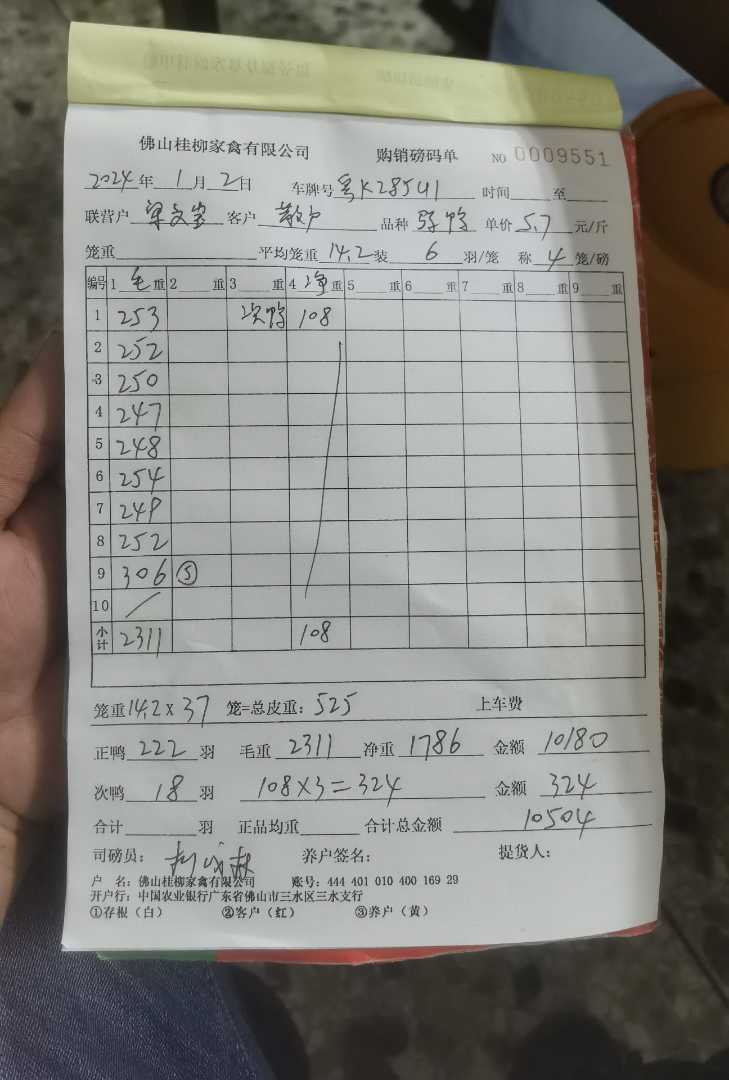 佛山桂柳家禽有限公司 购销磅码单 NO 0009551
2024年 1月 2日 车牌号 粤K28541 时间 至
联营户 梁 客户 散户 品种 单价 5.7 元/斤
笼重 平均笼重 14.2 装 6 羽/笼 称 4 笼/磅
编号 1 毛重 2 重 3 重 4 净重 5 重 6 重 7 重 8 重 9 重
1 253 次鸭 108
2 252
3 250
4 247
5 248
6 254
7 249
8 252
9 306 ⑤
10 /
小计 2311 108
笼重 14.2 x 37 笼=总皮重: 525 上车费
正鸭 222 羽 毛重 2311 净重 1786 金额 10180
次鸭 18 羽 108×3=324 金额 324
合计 羽 正品均重 合计总金额 10504
司磅员: 养户签名: 提货人:
户 名: 佛山桂柳家禽有限公司 账号: 444 401 010 400 169 29
开户行: 中国农业银行广东省佛山市三水区三水支行
①存根（白） ②客户（红） ③养户（黄）